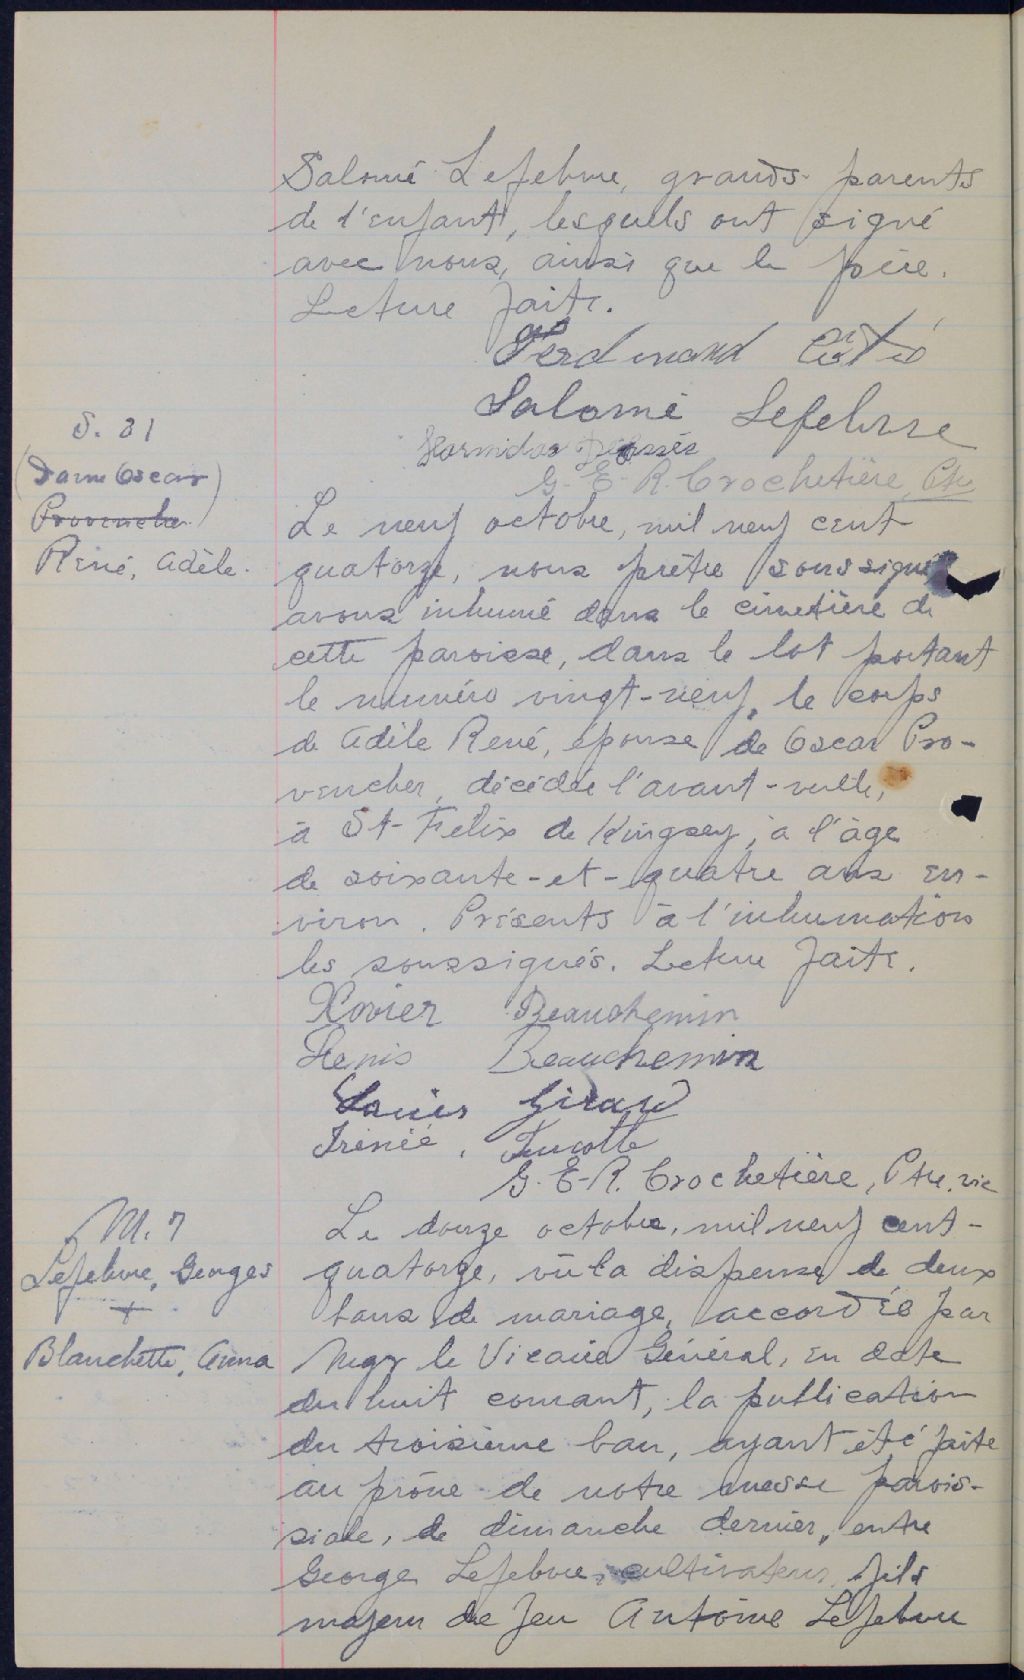 Salomé Lefebvre, grands-parents
de l'enfant, lesquels ont signé
avec nous, ainsi que le père.
Lecture faite.
Ferdinand Côté
Salomé Lefebvre
Hormidas
G. E. R. Crochetière, Ptre
S. 31
(Dame Oscar
Provencher)
René, Adèle.
Le neuf octobre, mil neuf cent
quatorze, nous prêtre soussigné
avons inhumé dans le cimetière de
cette paroisse, dans le lot portant
le numéro vingt-neuf, le corps
de Adèle René, épouse de Oscar Pro-
vencher, décédée l'avant-veille,
à St-Félix de Kingsey, à l'âge
de soixante-et-quatre ans en-
viron. Présents à l'inhumation
les soussignés. Lecture faite.
Xavier Beauchemin
Denis Beauchemin
Louis Girard
Irénée Turcotte
G. E-R. Crochetière, Ptre, vic
M. 7
Lefebvre, Georges
+
Blanchette, Anna
Le douze octobre, mil neuf cent-
quatorze, vu la dispense de deux
bans de mariage, accordée par
Mgr le Vicaire Général, en date
du huit courant, la publication
du troisième ban, ayant été faite
au prône de notre messe parois-
siale, de dimanche dernier, entre
George Lefebvre, cultivateur, fils
majeur de feu Antoine Lefebvre